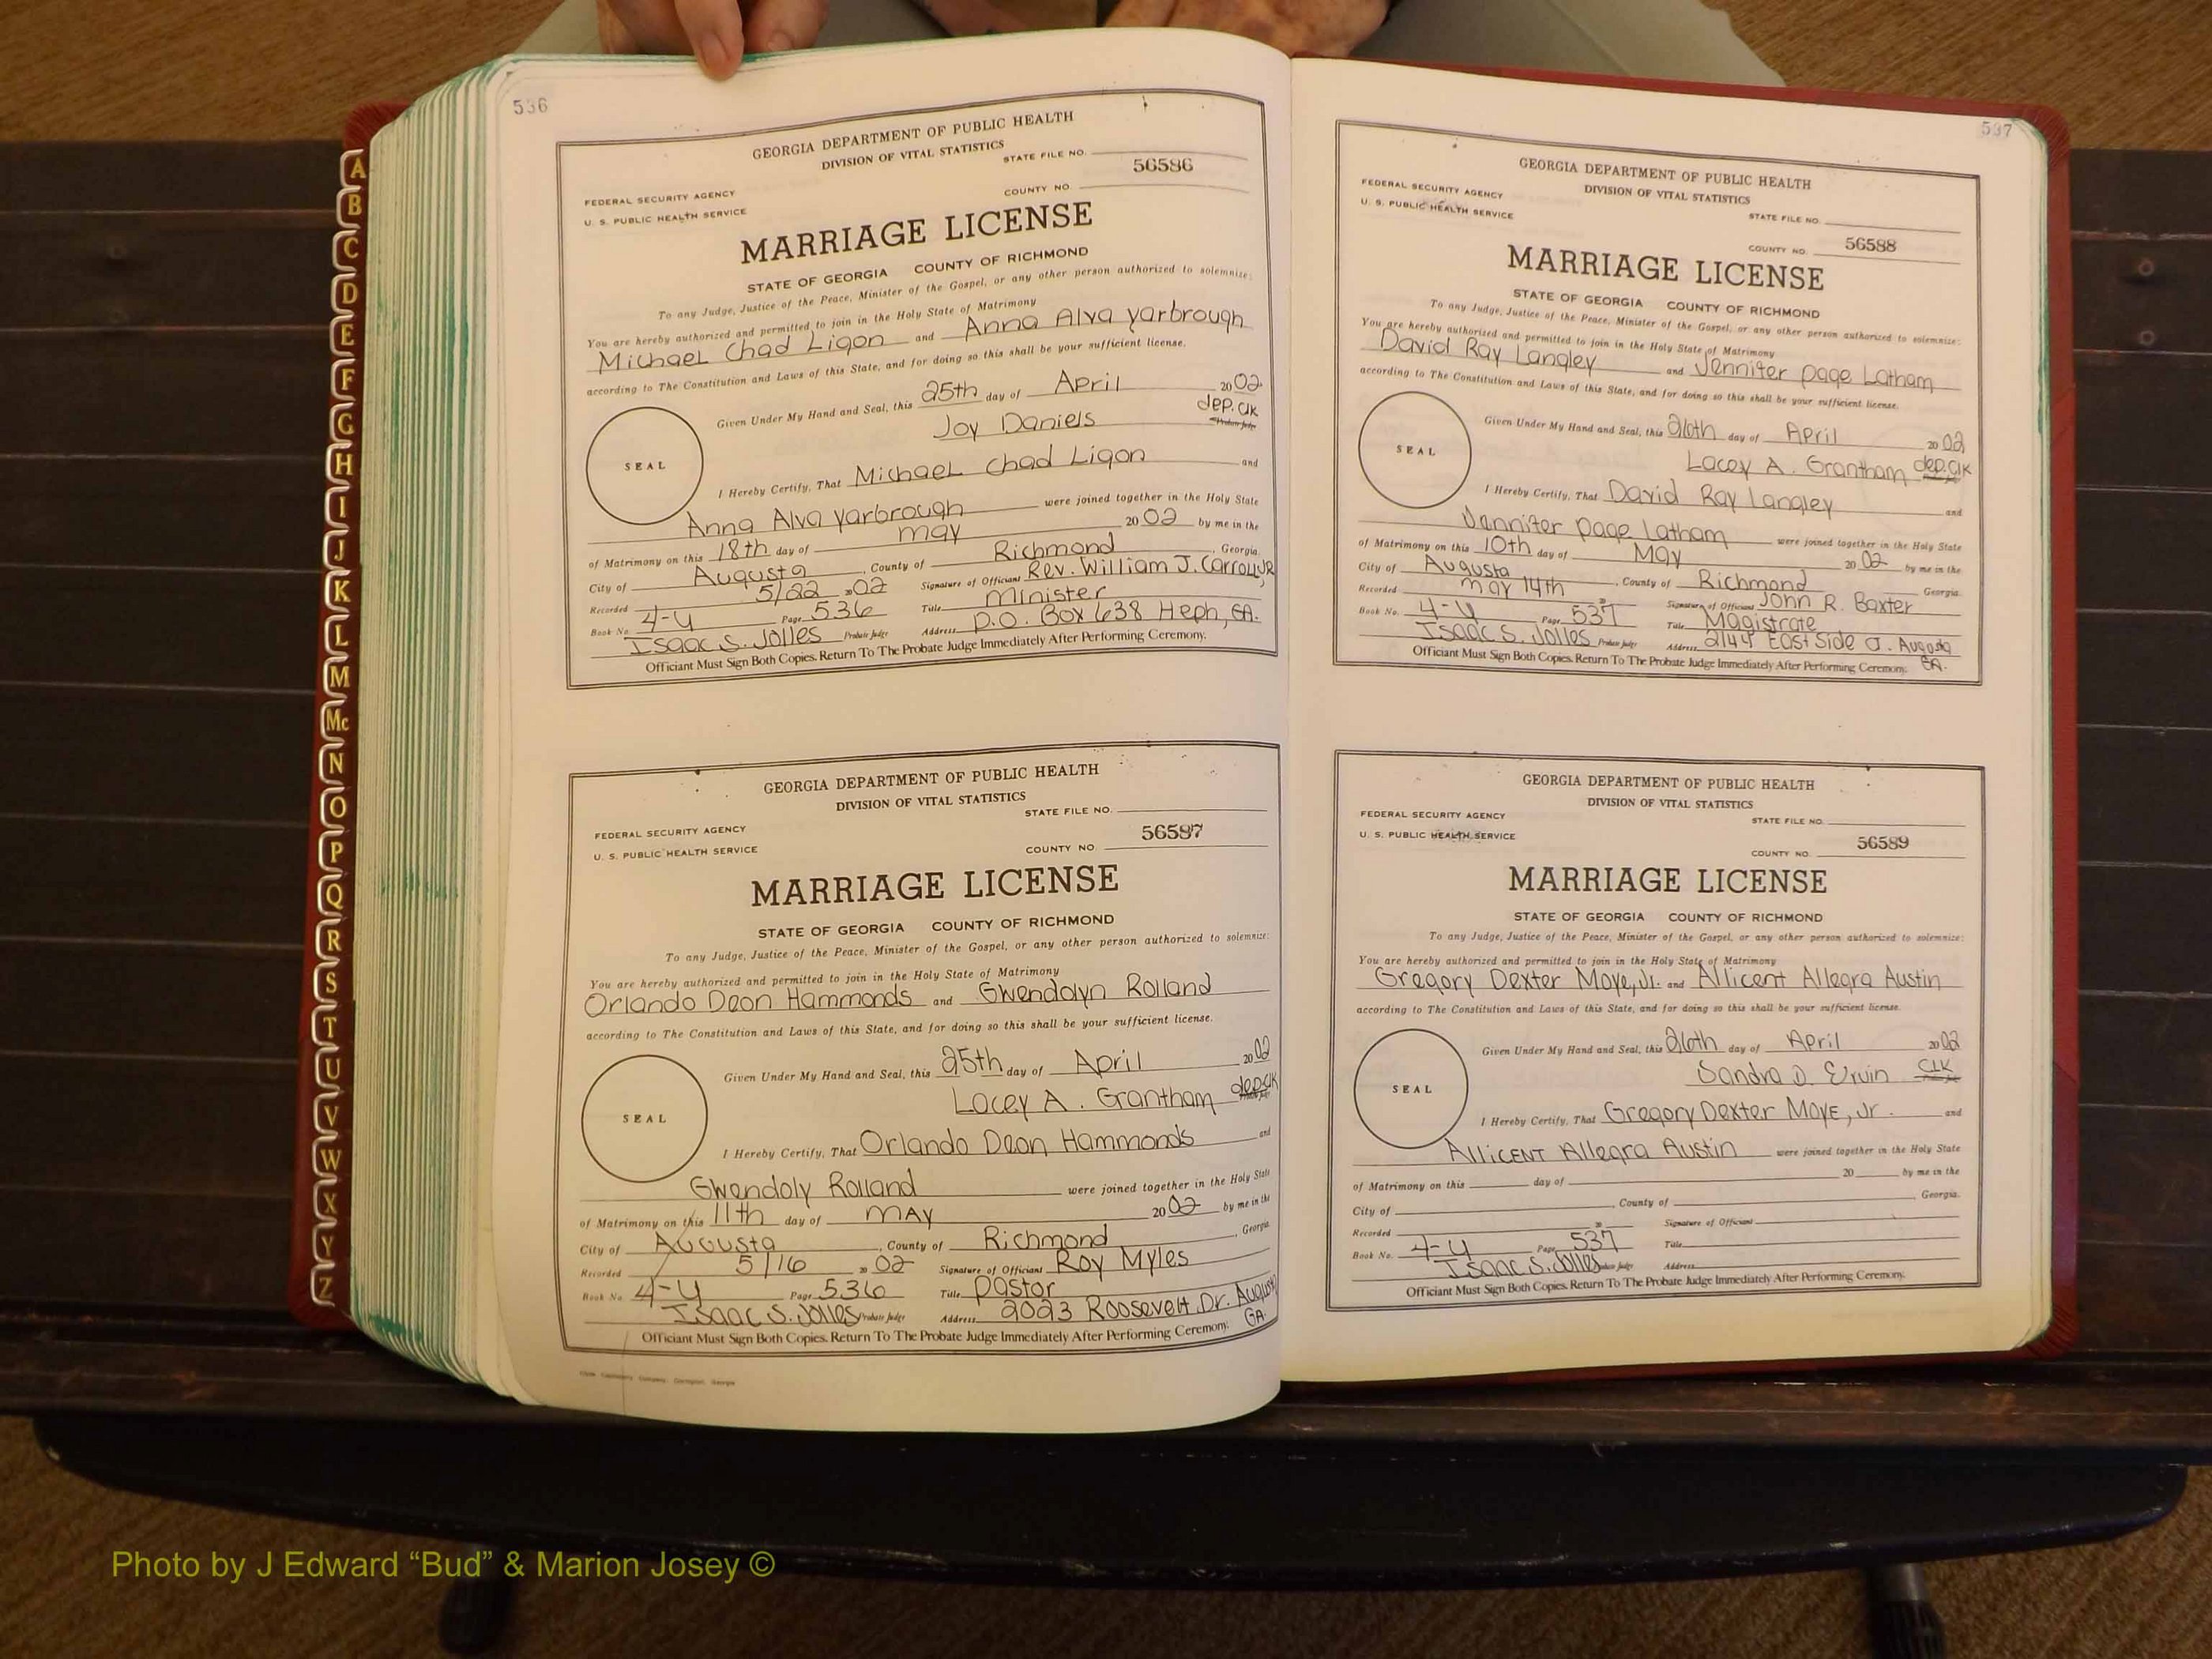 536
GEORGIA DEPARTMENT OF PUBLIC HEALTH
DIVISION OF VITAL STATISTICS
STATE FILE NO.
56586
FEDERAL SECURITY AGENCY
COUNTY NO.
U. S. PUBLIC HEALTH SERVICE
MARRIAGE LICENSE
STATE OF GEORGIA COUNTY OF RICHMOND
To any Judge, Justice of the Peace, Minister of the Gospel, or any other person authorized to solemnize:
You are hereby authorized and permitted to join in the Holy State of Matrimony
Michael Chad Ligon and Anna Alva Yarbrough
according to The Constitution and Laws of this State, and for doing so this shall be your sufficient license.
Given Under My Hand and Seal, this 25th day of April 2002
Joy Daniels dep. clk
SEAL
I Hereby Certify, That Michael Chad Ligon and
Anna Alva Yarbrough were joined together in the Holy State
of Matrimony on this 18th day of May 2002 by me in the
City of Augusta, County of Richmond, Georgia.
Recorded 5/22 2002 Signature of Officiant Rev. William J. Carroll, JR
Book No. 4-U Page 536 Title Minister
Isaac S. Jolles Probate Judge Address P.O. Box 638 Heph, GA.
Officiant Must Sign Both Copies. Return To The Probate Judge Immediately After Performing Ceremony.
GEORGIA DEPARTMENT OF PUBLIC HEALTH
DIVISION OF VITAL STATISTICS
STATE FILE NO.
FEDERAL SECURITY AGENCY
56587
U. S. PUBLIC HEALTH SERVICE
COUNTY NO.
MARRIAGE LICENSE
STATE OF GEORGIA COUNTY OF RICHMOND
To any Judge, Justice of the Peace, Minister of the Gospel, or any other person authorized to solemnize:
You are hereby authorized and permitted to join in the Holy State of Matrimony
Orlando Deon Hammonds and Gwendolyn Rolland
according to The Constitution and Laws of this State, and for doing so this shall be your sufficient license.
Given Under My Hand and Seal, this 25th day of April 2002
Lacey A. Grantham dep. clk
SEAL
I Hereby Certify, That Orlando Deon Hammonds and
Gwendoly Rolland were joined together in the Holy State
of Matrimony on this 11th day of MAY 2002 by me in the
City of Augusta, County of Richmond, Georgia
Recorded 5/16 2002 Signature of Officiant Roy Myles
Book No. 4-U Page 536 Title Pastor
Isaac S. Jolles Probate Judge Address 2023 Roosevelt Dr. Augusta
GA.
Officiant Must Sign Both Copies. Return To The Probate Judge Immediately After Performing Ceremony.
537
GEORGIA DEPARTMENT OF PUBLIC HEALTH
DIVISION OF VITAL STATISTICS
FEDERAL SECURITY AGENCY
STATE FILE NO.
U. S. PUBLIC HEALTH SERVICE
COUNTY NO. 56588
MARRIAGE LICENSE
STATE OF GEORGIA COUNTY OF RICHMOND
To any Judge, Justice of the Peace, Minister of the Gospel, or any other person authorized to solemnize:
You are hereby authorized and permitted to join in the Holy State of Matrimony
David Ray Langley and Jennifer Page Latham
according to The Constitution and Laws of this State, and for doing so this shall be your sufficient license.
Given Under My Hand and Seal, this 26th day of April 2002
Lacey A. Grantham dep. clk
SEAL
I Hereby Certify, That David Ray Langley and
Jennifer Page Latham were joined together in the Holy State
of Matrimony on this 10th day of May 2002 by me in the
City of Augusta, County of Richmond Georgia
Recorded May 14th 20 Signature of Officiant John R. Baxter
Book No. 4-U Page 537 Title Magistrate
Isaac S. Jolles Probate Judge Address 2144 East Side Augusta
GA.
Officiant Must Sign Both Copies. Return To The Probate Judge Immediately After Performing Ceremony.
GEORGIA DEPARTMENT OF PUBLIC HEALTH
DIVISION OF VITAL STATISTICS
FEDERAL SECURITY AGENCY
STATE FILE NO.
U. S. PUBLIC HEALTH SERVICE
COUNTY NO. 56589
MARRIAGE LICENSE
STATE OF GEORGIA COUNTY OF RICHMOND
To any Judge, Justice of the Peace, Minister of the Gospel, or any other person authorized to solemnize:
You are hereby authorized and permitted to join in the Holy State of Matrimony
Gregory Dexter Moye, Jr. and Allicent Allegra Austin
according to The Constitution and Laws of this State, and for doing so this shall be your sufficient license.
Given Under My Hand and Seal, this 26th day of April 2002
Sandra D. Ervin CLK
SEAL
I Hereby Certify, That Gregory Dexter Moye, Jr. and
Allicent Allegra Austin were joined together in the Holy State
of Matrimony on this day of 20 by me in the
City of , County of Georgia.
Recorded 20 Signature of Officiant
Book No. 4-U Page 537 Title
Isaac S. Jolles Probate Judge Address
Officiant Must Sign Both Copies. Return To The Probate Judge Immediately After Performing Ceremony.
A
B
C
D
E
F
G
H
I
J
K
L
M
Mc
N
O
P
Q
R
S
T
U
V
W
X
Y
Z
Photo by J Edward “Bud” & Marion Josey ©